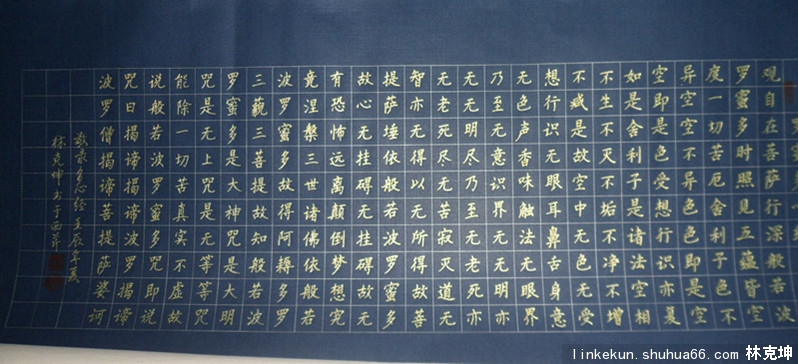 观自在菩萨行深般若波
罗蜜多时照见五蕴皆空
度一切苦厄舍利子色不
异空空不异色色即是空
空即是色受想行识亦复
如是舍利子是诸法空相
不生不灭不垢不净不增
不减是故空中无色无受
想行识无眼耳鼻舌身意
无色声香味触法无眼界
乃至无意识界无无明亦
无无明尽乃至无老死亦
无老死尽无苦寂灭道无
智亦无得以无所得故菩
提萨埵依般若波罗蜜多
故心无挂碍无挂碍故无
有恐怖远离颠倒梦想究
竟涅槃三世诸佛依般若
波罗蜜多故得阿耨多罗
三藐三菩提故知般若波
罗蜜多是大神咒是大明
咒是无上咒是无等等咒
能除一切苦真实不虚故
说般若波罗蜜多咒即说
咒曰揭谛揭谛波罗揭谛
波罗僧揭谛菩提萨婆诃
敬录多心经 壬辰年夏
林克坤书于西
linkekun.shuhua66.com 林克坤